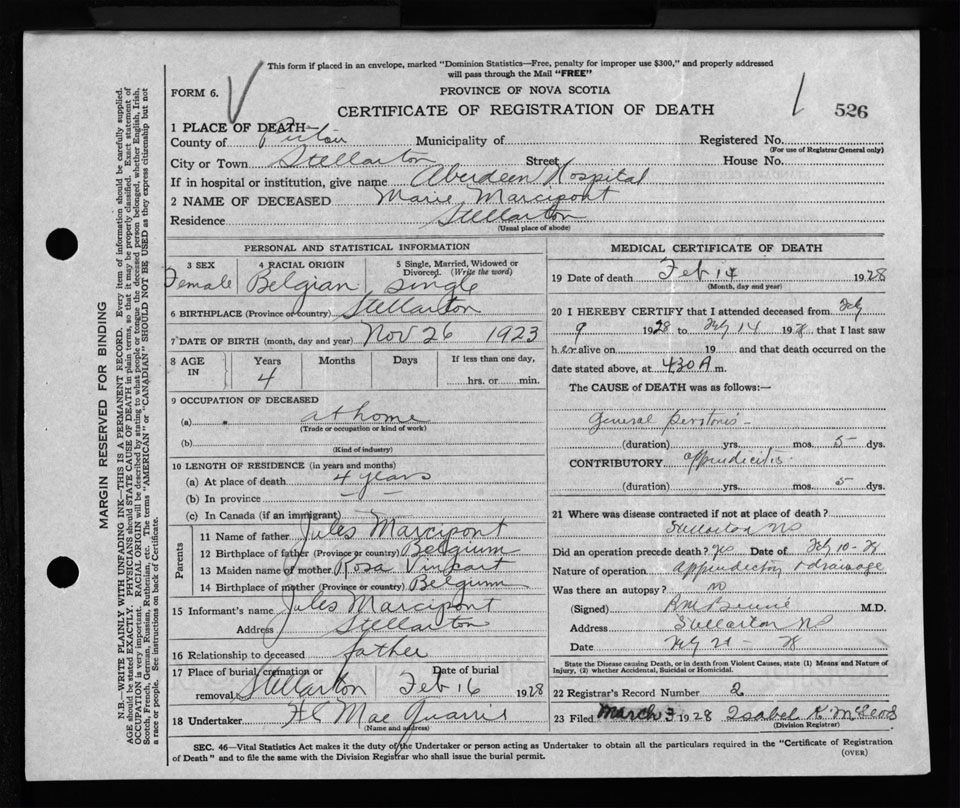 This form if placed in an envelope, marked "Dominion Statistics—Free, penalty for improper use $300," and properly addressed
will pass through the Mail "FREE"
FORM 6.
PROVINCE OF NOVA SCOTIA
CERTIFICATE OF REGISTRATION OF DEATH
526
1 PLACE OF DEATH—
County of Pictou Municipality of Registered No.
(For use of Registrar General only)
City or Town Stellarton Street House No.
If in hospital or institution, give name Aberdeen Hospital
2 NAME OF DECEASED Marie Marcipont
Residence Stellarton
(Usual place of abode)
PERSONAL AND STATISTICAL INFORMATION
3 SEX 4 RACIAL ORIGIN 5 Single, Married, Widowed or
Divorced. (Write the word)
Female Belgian single
6 BIRTHPLACE (Province or country) Stellarton
7 DATE OF BIRTH (month, day and year) Nov 26 1923
8 AGE IN Years Months Days If less than one day,
4 hrs. or min.
9 OCCUPATION OF DECEASED
(a) at home
(Trade or occupation or kind of work)
(b)
(Kind of industry)
10 LENGTH OF RESIDENCE (in years and months)
(a) At place of death 4 years
(b) In province
(c) In Canada (if an immigrant)
Parents
11 Name of father Jules Marcipont
12 Birthplace of father (Province or country) Belgium
13 Maiden name of mother Rosa
14 Birthplace of mother (Province or country) Belgium
15 Informant's name Jules Marcipont
Address Stellarton
16 Relationship to deceased father
17 Place of burial, cremation or Date of burial
removal Stellarton Feb 16 1928
18 Undertaker
(Name and address)
MEDICAL CERTIFICATE OF DEATH
19 Date of death Feb 14 1928
(Month, day and year)
20 I HEREBY CERTIFY that I attended deceased from Feby
9 1928 to Feby 14 1928, that I last saw
her alive on 19 and that death occurred on the
date stated above, at 4.30 A m.
The CAUSE of DEATH was as follows:—
General
(duration) yrs. mos. 5 dys.
CONTRIBUTORY appendicitis
(duration) yrs. mos. 5 dys.
21 Where was disease contracted if not at place of death?
Stellarton NS
Did an operation precede death? yes Date of Feby 10-28
Nature of operation drainage
Was there an autopsy? no
(Signed) M.D.
Address Stellarton NS
Date Feby 21 - 28
State the Disease causing Death, or in death from Violent Causes, state (1) Means and Nature of
Injury, (2) whether Accidental, Suicidal or Homicidal.
22 Registrar's Record Number 2
23 Filed March 3 1928 Isabel K McLeod
(Division Registrar)
SEC. 46—Vital Statistics Act makes it the duty of the Undertaker or person acting as Undertaker to obtain all the particulars required in the "Certificate of Registration
of Death" and to file the same with the Division Registrar who shall issue the burial permit.
(OVER)
MARGIN RESERVED FOR BINDING
N.B.—WRITE PLAINLY WITH UNFADING INK—THIS IS A PERMANENT RECORD. Every item of information should be carefully supplied.
AGE should be stated EXACTLY. PHYSICIANS should STATE CAUSE OF DEATH in plain terms, so that it may be properly classified. Exact statement of
OCCUPATION is very important. RACIAL ORIGIN will be described by stating to what people or tongue the deceased person belonged, whether English, Irish,
Scotch, French, German, Russian, Ruthenian, etc. The terms "AMERICAN" or "CANADIAN" SHOULD NOT BE USED as they express citizenship but not
a race or people. See instructions on back of Certificate.